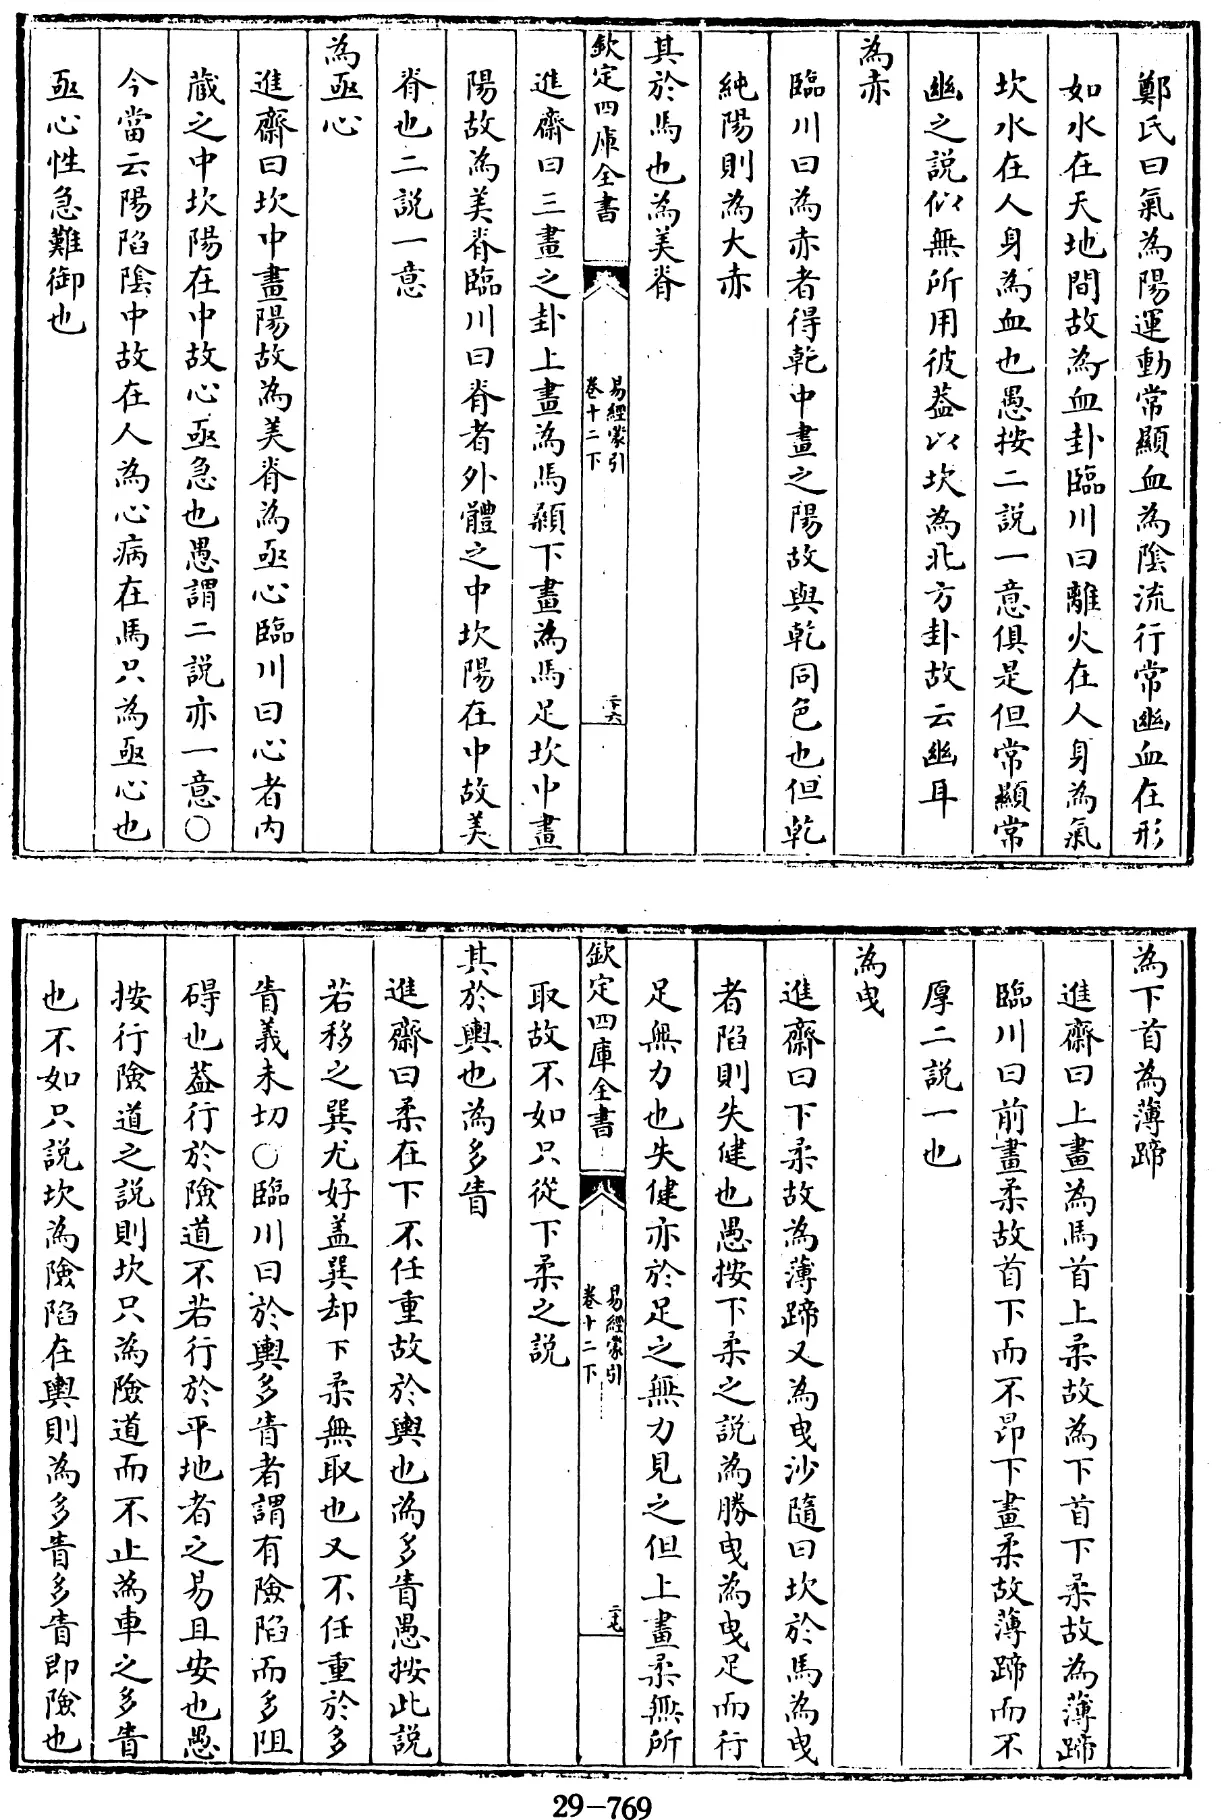 鄭氏曰氣為陽運動常顯血為陰流行常幽血在形
如水在天地間故為血卦臨川曰離火在人身為氣
坎水在人身為血也愚按二説一意俱是但常顯常
幽之説似無所用彼葢以坎為北方卦故云幽耳
為赤
臨川曰為赤者得乾中畫之陽故與乾同色也但乾
純陽則為大赤
其於馬也為美脊
欽定四庫全書
易經蒙引
卷十二下
二十六
進齋曰三畫之卦上畫為馬顙下畫為馬足坎中畫
陽故為美脊臨川曰脊者外體之中坎陽在中故美
脊也二説一意
為亟心
進齋曰坎中畫陽故為美脊為亟心臨川曰心者内
蔵之中坎陽在中故心亟急也愚謂二説亦一意○
今當云陽陷陰中故在人為心病在馬只為亟心也
亟心性急難御也
為下首為薄蹄
進齋曰上畫為馬首上柔故為下首下柔故為薄蹄
臨川曰前畫柔故首下而不昂下畫柔故薄蹄而不
厚二説一也
為曳
進齋曰下柔故為薄蹄又為曳沙隨曰坎於馬為曳
者陷則失健也愚按下柔之説為勝曳為曳足而行
足無力也失健亦於足之無力見之但上畫柔無所
欽定四庫全書
易經蒙引
卷十二下
二十七
取故不如只從下柔之説
其於輿也為多眚
進齋曰柔在下不任重故於輿也為多眚愚按此説
若移之巽尤好盖巽却下柔無取也又不任重於多
眚義未切○臨川曰於輿多眚者謂有險陷而多阻
碍也葢行於險道不若行於平地者之易且安也愚
按行險道之説則坎只為險道而不止為車之多眚
也不如只説坎為險陷在輿則為多眚多眚即險也
29-769